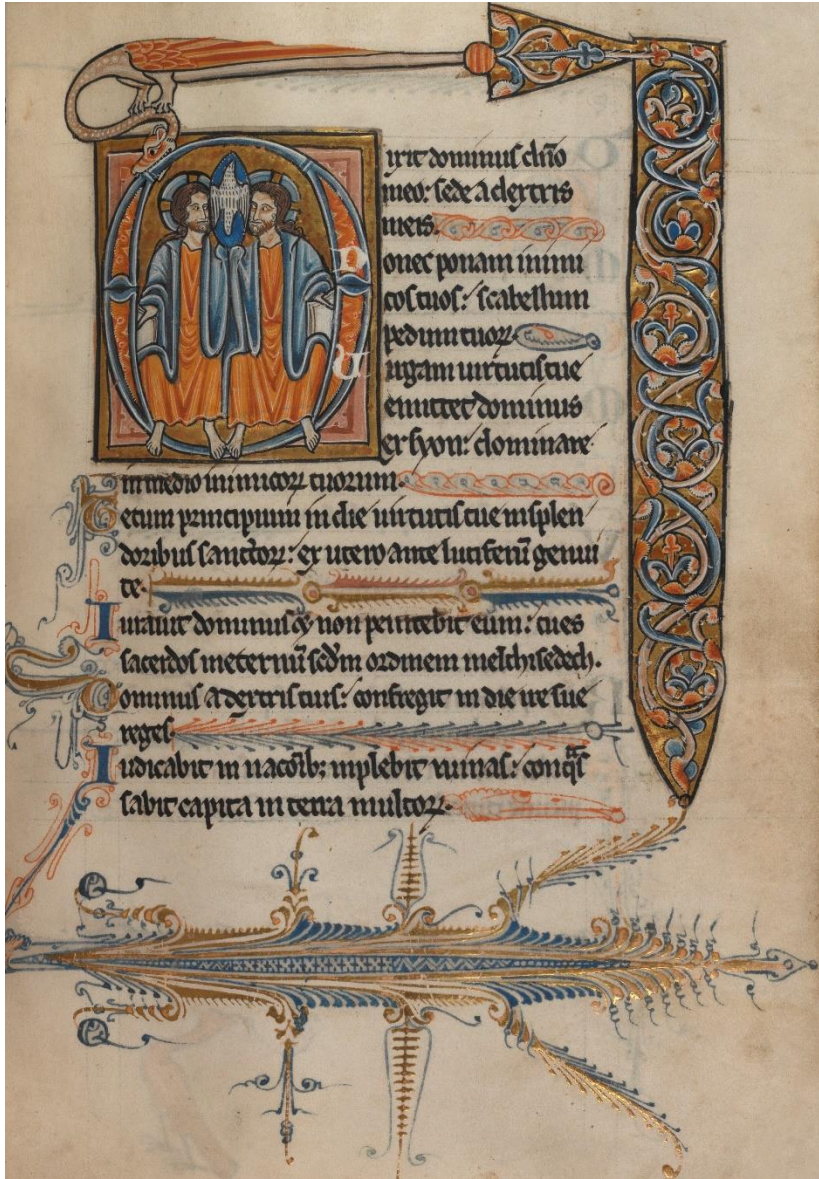 D
ixit dominus domino
meo: sede a dextris
meis.
Donec ponam inimi
cos tuos: scabellum
pedum tuoꝝ.
Virgam uirtutis tue
emittet dominus
ex syon: dominare
in medio inimicoꝝ tuorum.
Tecum principium in die uirtutis tue in splen
doribus sanctoꝝ: ex utero ante luciferū genui
te.
Iurauit dominus ⁊ non penitebit eum: tu es
sacerdos in eternū scd̄m ordinem melchisedech.
Dominus a dextris tuis: confregit in die ire sue
reges.
Iudicabit in nacōibꝫ inplebit ruinas: conq̄s
sabit capita in terra multoꝝ.